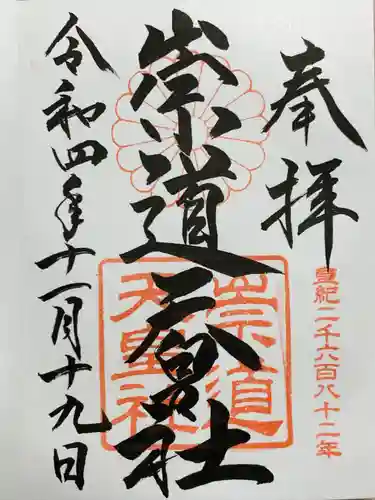 奉拝
皇紀二千六百八十二年
崇道天皇社
崇道天皇社
令和四年十一月十九日